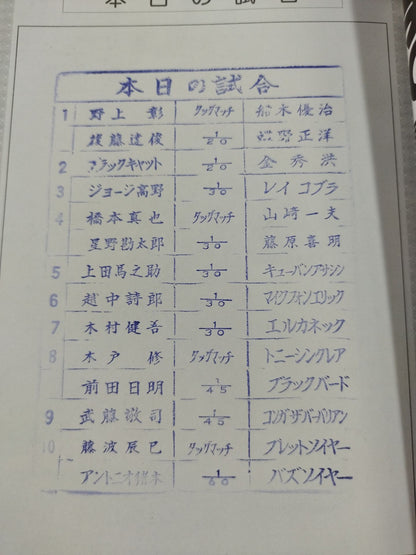 本日の試合
本日の試合
1 野上 彰 タッグマッチ 船木優治
後藤達俊 1/20 蝶野正洋
2 ブラックキャット 1/20 金秀洪
3 ジョージ高野 1/30 レイコブラ
4 橋本真也 タッグマッチ 山崎一夫
星野勘太郎 1/30 藤原喜明
5 上田馬之助 1/30 キューバンアサシン
6 越中詩郎 1/30 マイクフォンエリック
7 木村健吾 1/30 エルカネック
8 木戸 修 タッグマッチ トニーシンクレア
前田日明 1/45 ブラックバード
9 武藤敬司 1/45 コンガザバーバリアン
10 藤波辰巳 タッグマッチ ブレットソイヤー
アントニオ猪木 1/60 バズソイヤー